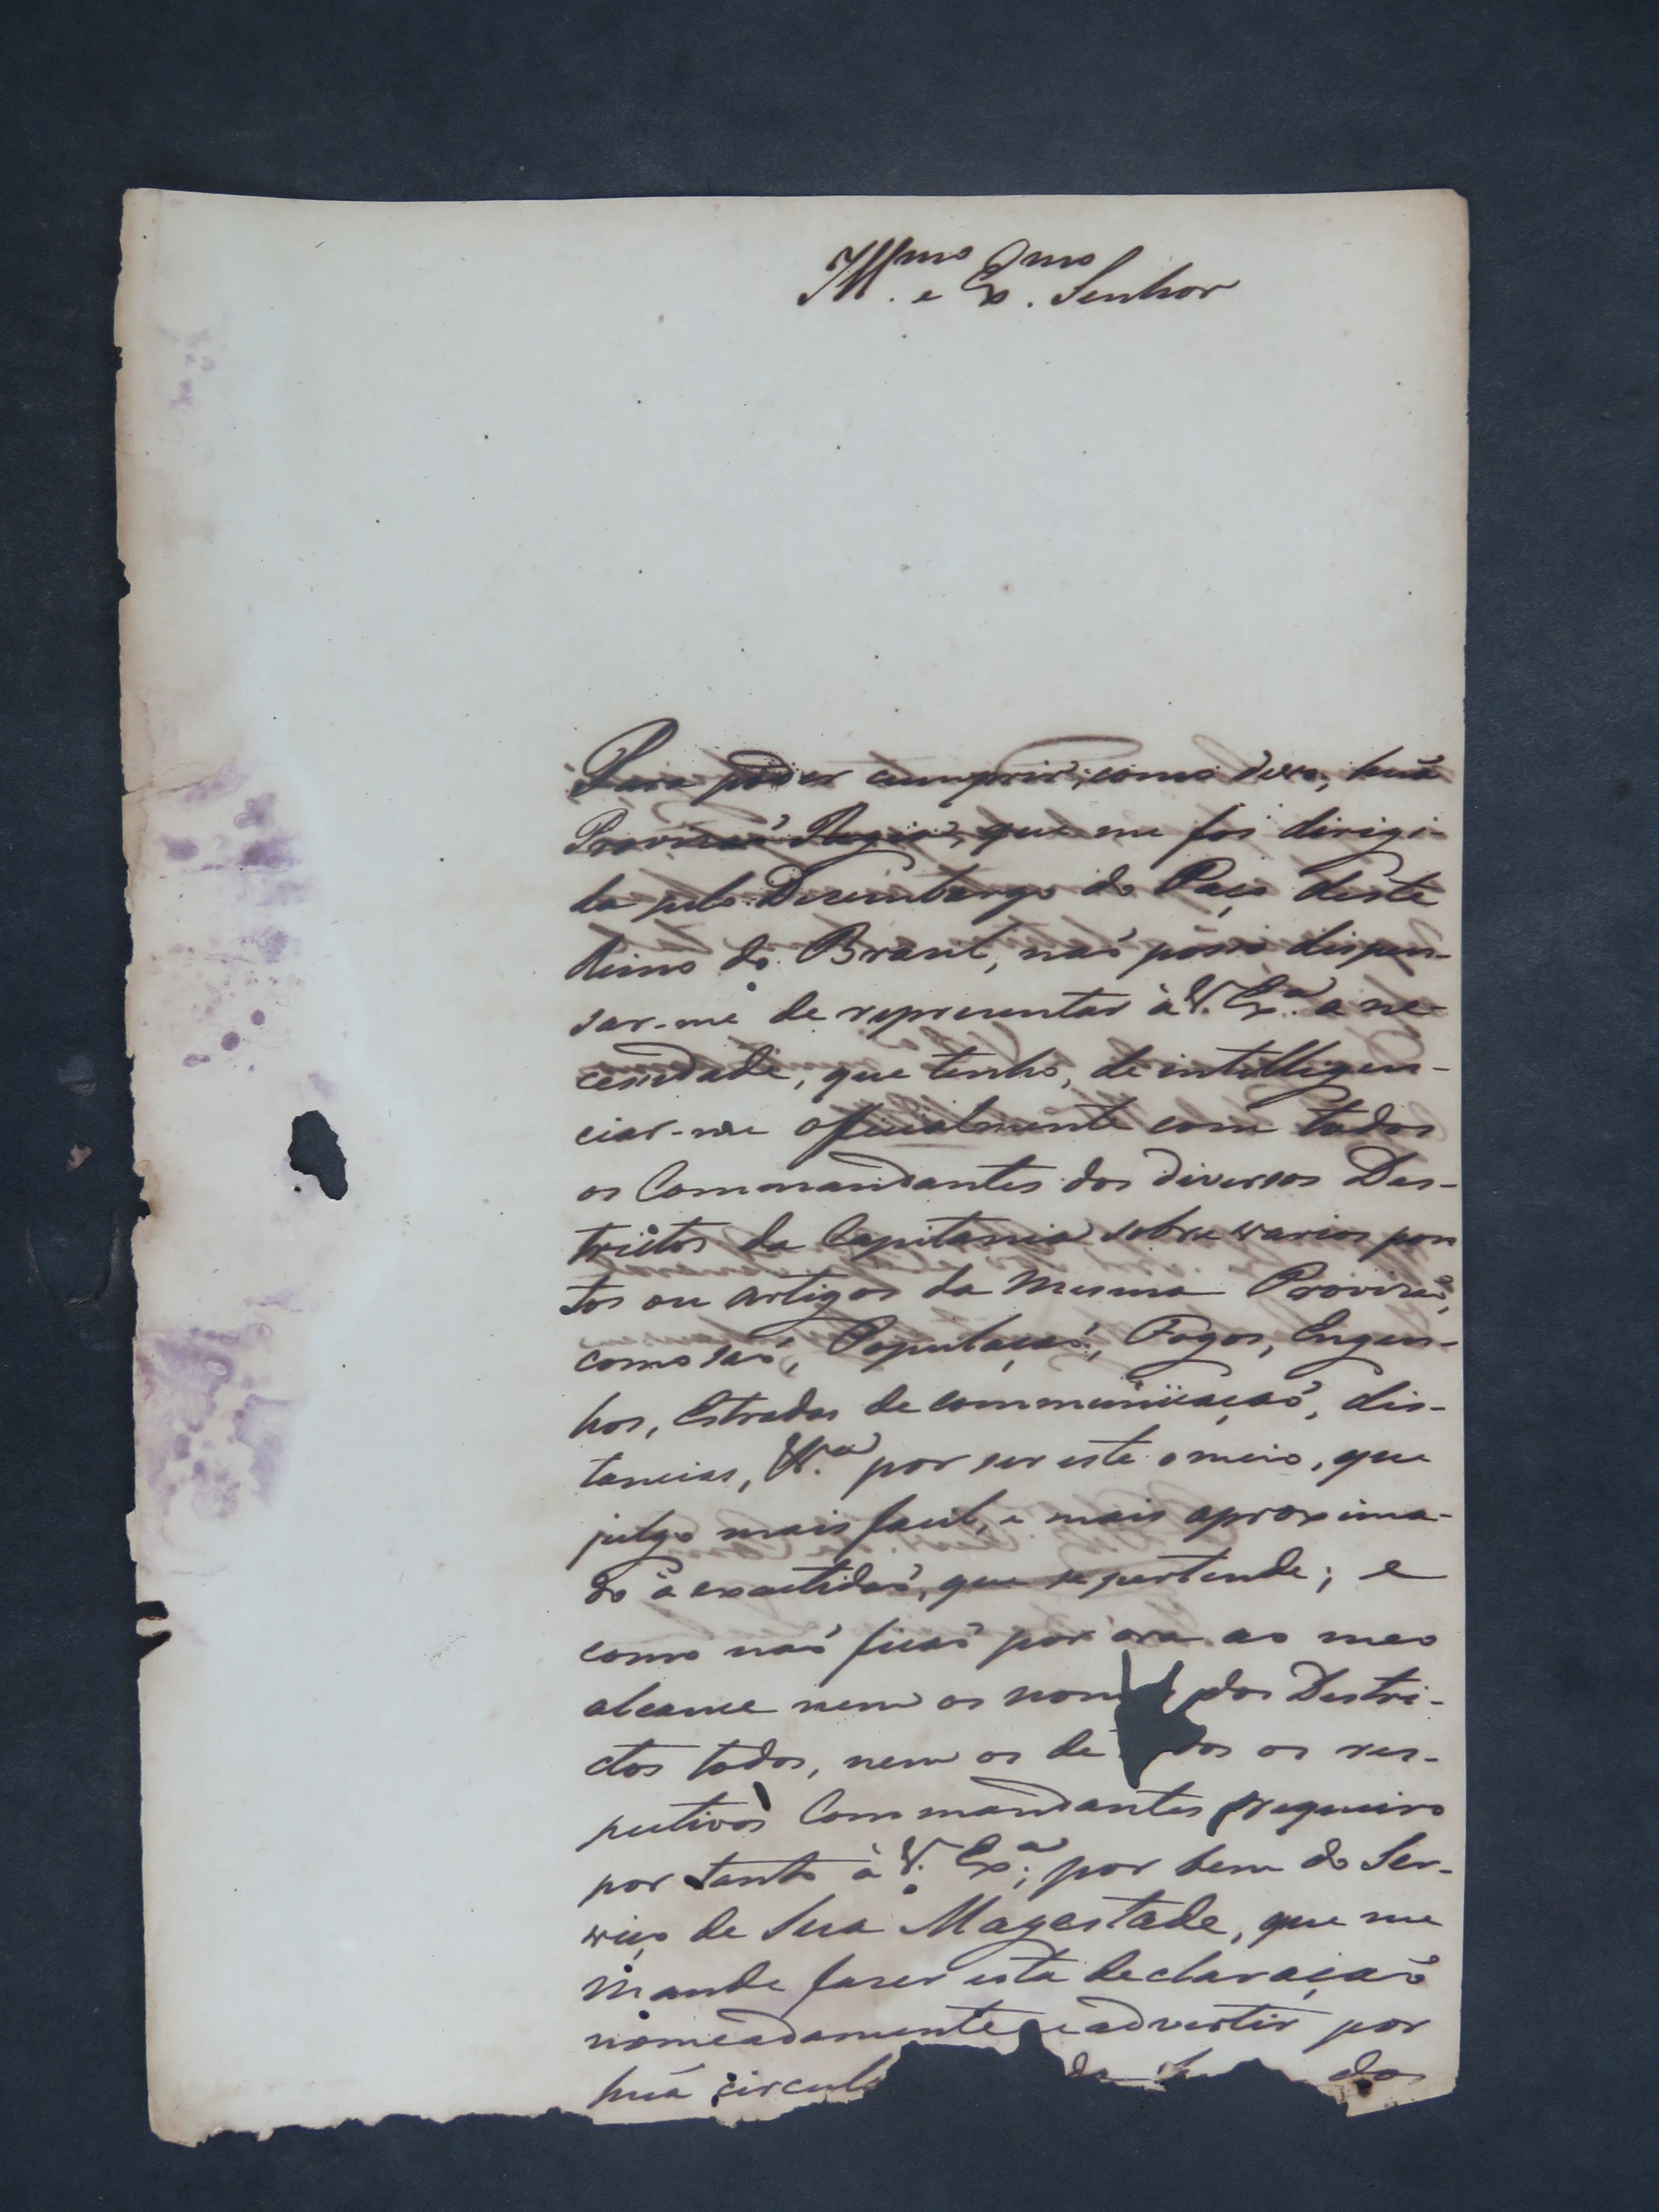 Ill.mo e Ex.mo Senhor
Para poder cumprir, como devo, huã
Provizaõ Regia, que me foi dirigi-
da pelo Dezembargo do Paço deste
Reino do Brazil, naõ posso dispen-
sar-me de reprezentar à V. Ex.a a ne-
cessidade, que tenho, de intelligen-
ciar-me oficialmente com todos
os Commandantes dos diversos Des-
trictos da Capitania sobre varios pon
tos ou artigos da mesma Provizaõ,
como saõ, Populaçaõ, Fogos, Engen-
hos, Estradas de communicaçaõ, dis-
tancias, &.a por ser este o meio, que
julgo mais facil, e mais aproxima-
do à exactidaõ, que se pertende; e
como naõ ficaõ por óra ao meo
alcance nem os nom dos Destri-
ctos todos, nem os de dos os res-
pectivos Commandantes requeiro
por tanto à V. Ex.a, por bem do Ser-
viço de Sua Magestade, que me
mande fazer esta declaraçaõ
nomeadamente e advertir por
huã circul da dos